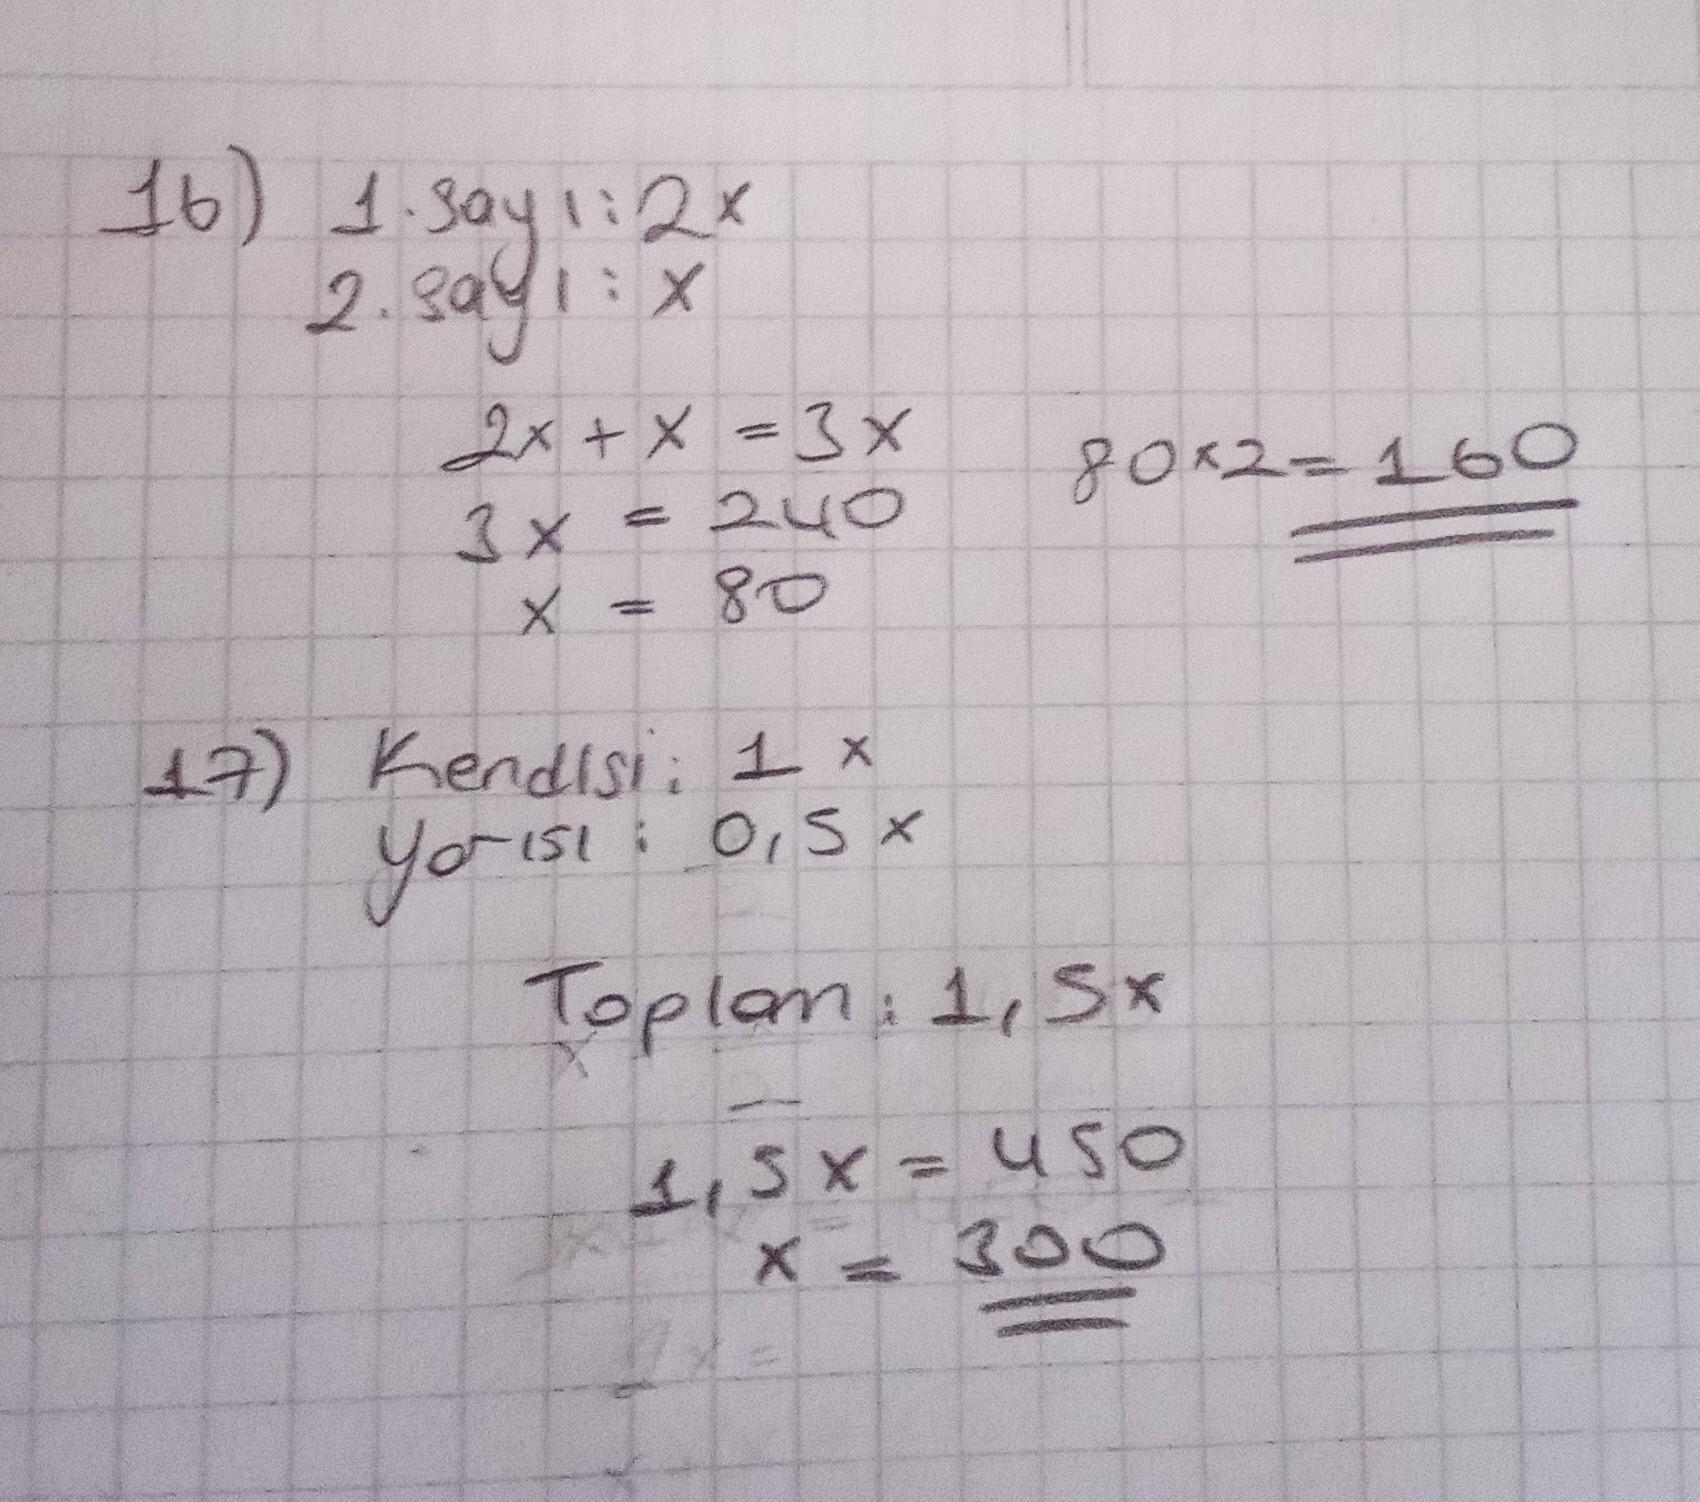 16) 1.sayı: 2x
2.sayı: x
2x + x = 3x
3x = 240
x = 80
80x2 = 160
17) Kendisi: 1x
Yarısı: 0,5x
Toplam: 1,5x
1,5x = 450
x = 300